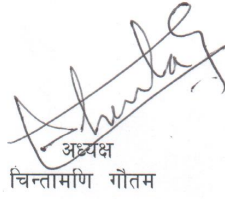 अध्यक्ष
चिन्तामणि गौतम